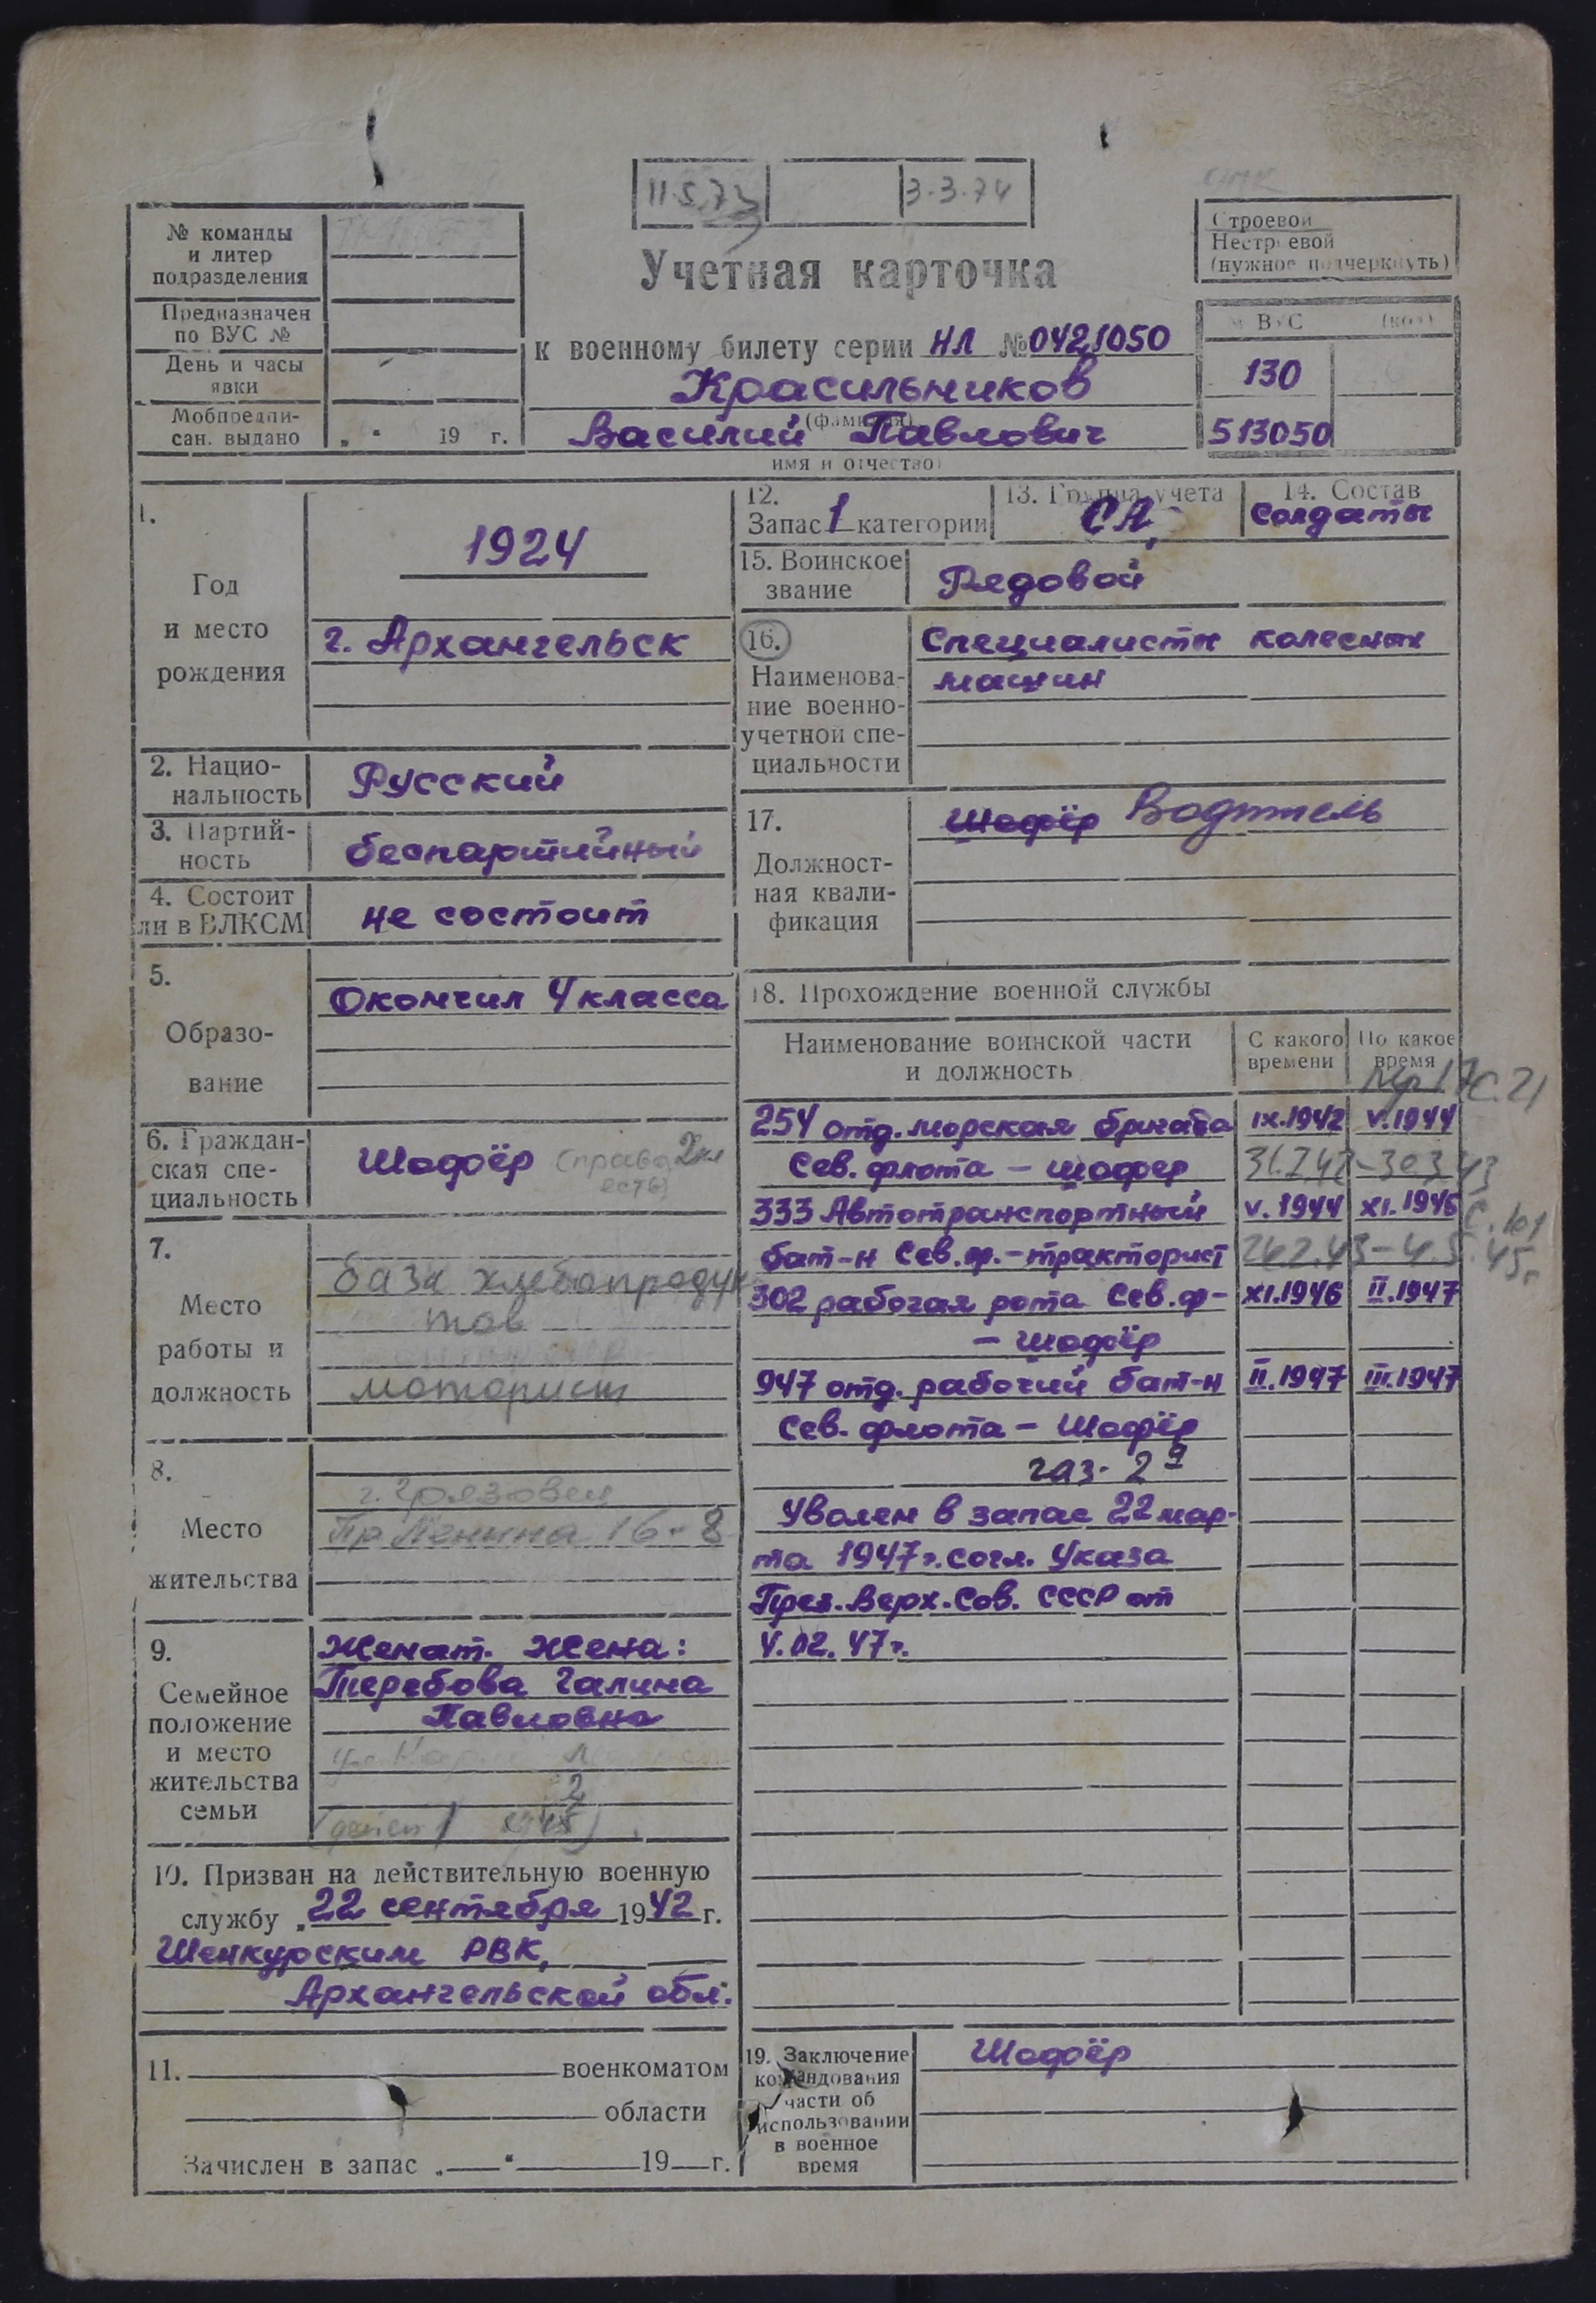 11.5.73 3.3.74
№ команды
и литер
подразделения
Предназначен
по ВУС №
День и часы
явки
Мобпредпи-
сан. выдано „ “ 19 г.
Учетная карточка
к военному билету серии НЛ №0421050
Красильников
(фамилия)
Василий Павлович
имя и отчество)
Строевой
Нестроевой
(нужное подчеркнуть)
№ ВУС (код)
130
513050
1.
Год
и место
рождения
1924
г. Архангельск
2. Нацио-
нальность
Русский
3. Партий-
ность
беспартийный
4. Состоит
ли в ВЛКСМ
не состоит
5.
Образо-
вание
Окончил 4 класса
6. Граждан-
ская спе-
циальность
Шофёр (права 2кл
есть)
7.
Место
работы и
должность
база хлебопродук
тов
моторист
8.
Место
жительства
г. Грязовец
пр Ленина 16-8
9.
Семейное
положение
и место
жительства
семьи
Женат. Жена:
Теребова Галина
Павловна
2
10. Призван на действительную военную
службу „22 сентября 1942 г.
Шенкурским РВК,
Архангельской обл.
11. военкоматом
области
Зачислен в запас „ “ 19 г.
12.
Запас 1 категории
13. Группа учета
СА
14. Состав
Солдаты
15. Воинское
звание
Рядовой
16.
Наименова-
ние военно-
учетной спе-
циальности
Специалисты колесных
машин
17.
Должност-
ная квали-
фикация
Шофёр Водитель
18. Прохождение военной службы
Наименование воинской части
и должность
С какого
времени
По какое
время
с. 21
254 отд. морская бригада IX.1942 V.1944
Сев. флота – шофер
333 Автотранспортный V.1944 XI.1946
с. 101
бат-н Сев. ф. – тракторист
45г
302 рабочая рота Сев. ф- XI.1946 II.1947
– шофёр
947 отд. рабочий бат-н II.1947 III.1947
Сев. флота – Шофёр
газ-
Уволен в запас 22 мар-
та 1947г. согл. Указа
През. Верх. Сов. СССР от
4.02.47г.
19. Заключение
командования
части об
использовании
в военное
время
Шофёр